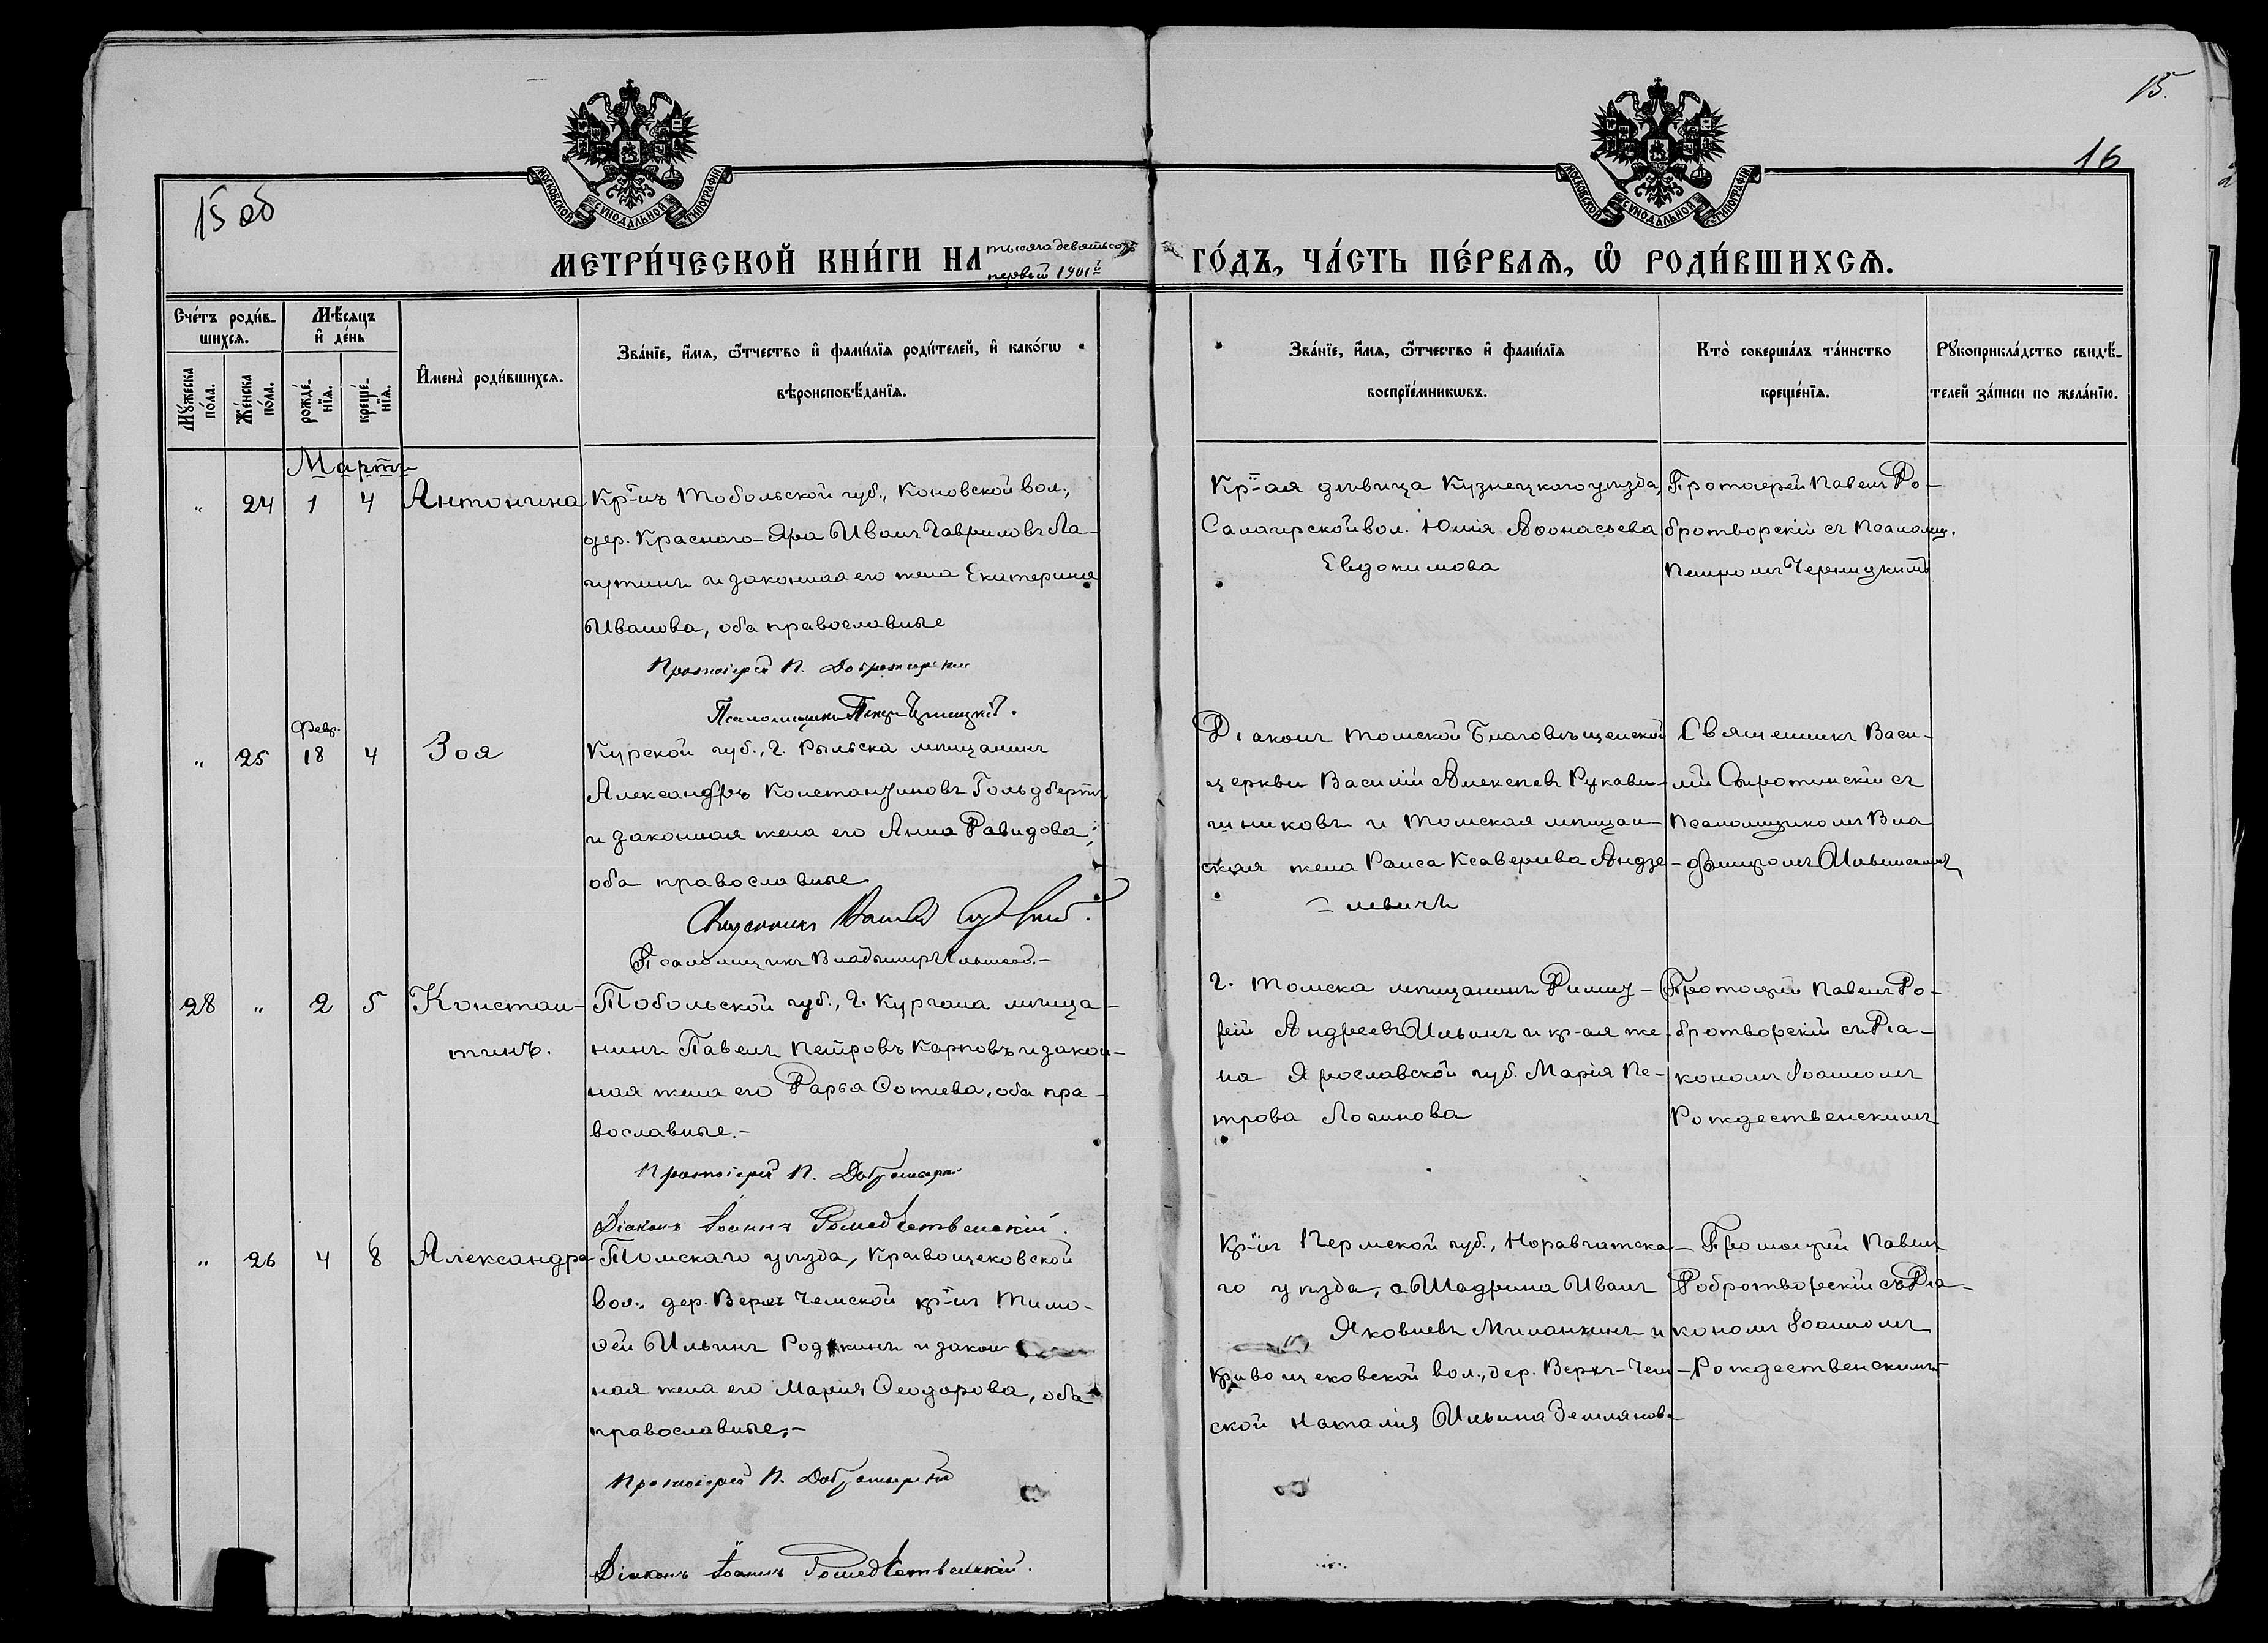 15.
16
15 об
МОСКОВСКОЙ СѴНОДАЛЬНОЙ ТИПОГРАФІИ
МОСКОВСКОЙ СѴНОДАЛЬНОЙ ТИПОГРАФІИ
МЕТРИ́ЧЕСКОЙ КНИ́ГИ НА тысяча девятьсотъ первый 1901й ГО́ДЪ, ЧА́СТЬ ПЕ́РВАѦ, Ѡ РОДИ́ВШИХСѦ.
Сче́тъ роди́в-
шихсѧ.
Мꙋ́жеска по́ла.
Же́нска по́ла.
Мѣ́сѧцъ и҆ де́нь
рожде́-
нїѧ.
креще́-
нїѧ.
И҆мена̀ роди́вшихсѧ.
Зва́нїе, и҆́мѧ, ѻ҆́тчество и҆ фами́лїѧ роди́телей, и҆ како́гѡ
вѣроисповѣ́данїѧ.
Зва́нїе, и҆́мѧ, ѻ҆́тчество и҆ фами́лїѧ
воспрїе́мникѡвъ.
Кто̀ соверша́лъ та́инство
креще́нїѧ.
Рꙋкоприкла́дство свидѣ́-
телей за́писи по жела́нїю.
Мартъ
" 24 1 4 Антонина
Кр-нъ Тобольской губ., Коновской вол.,
дер. Красного-Яра Иванъ Гавриловъ Ла-
гутинъ и законная его жена Екатерина
Иванова, оба православные
Протоіерей П. Добротворскій
Псаломщикъ Петръ Черницкій.
Кр-ая дѣвица Кузнецкого уѣзда,
Салаирской вол. Юлія Аѳонасьева
Евдокимова
Протоіерей Павелъ До-
бротворскій съ Псаломщ.
Петромъ Черницкимъ
Февр.
" 25 18 4 Зоя
Курской губ., г. Рыльска мѣщанинъ
Александръ Константиновъ Гольдбертъ
и законная жена его Анна Давидова,
оба православные
Священникъ Василій
Псаломщикъ Владиміръ Ильинскій.-
Діаконъ Томской Благовѣщенской
церкви Василій Алексѣевъ Рукави-
шниковъ и Томская мѣщан-
ская жена Раиса Ксаверьева Андзе-
левичъ
Священникъ Васи-
лій Сиротинскій съ
Псаломщикомъ Вла
диміромъ Ильинскимъ
28 " 2 5 Констан-
тинъ.
Тобольской губ., г. Кургана мѣща-
нинъ Павелъ Петровъ Карповъ и закон-
ная жена его Дарья Фотиева, оба пра-
вославные.-
Протоіерей П. Добротворскій
Діаконъ Іоаннъ Рождественскій.
г. Томска мѣщанинъ Димит-
рій Андреевъ Ильинъ и кр-ая же-
на Ярославской губ. Марія Пе-
трова Логинова
Протоіерей Павелъ До-
бротворскій съ Діа-
кономъ Іоанномъ
Рождественскимъ
" 26 4 8 Александра
Томскаго уѣзда, Кривощековской
вол., дер. Верхъ Чемской кр-нъ Тимо-
ѳей Ильинъ Родкинъ и закон
ная жена его Марія Ѳеодорова, оба
православные.-
Протоіерей П. Добротворскій
Діаконъ Іоаннъ Рождественскій.
Кр-нъ Пермской губ.,
го уѣзда, с. Шадрина Иванъ
Яковлевъ Миланкинъ и
Кривощековской вол., дер. Верхъ-Чем-
ской Наталія Ильина Землянова
Протоіерей Павелъ
Добротворскій съ Діа-
кономъ Іоанномъ
Рождественскимъ